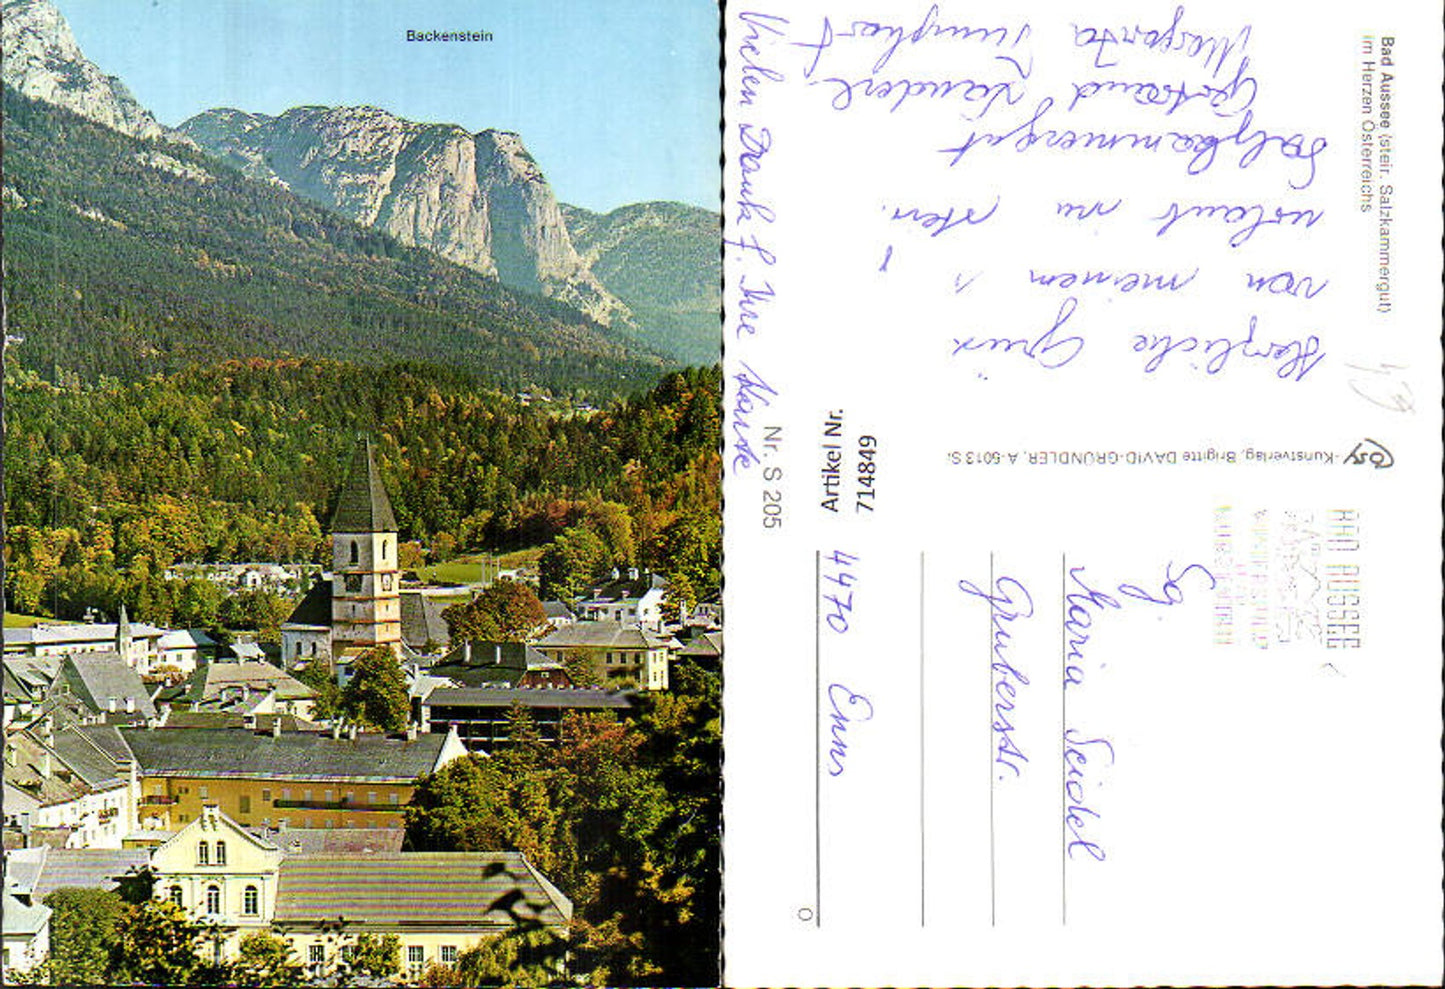 Backenstein
Bad Aussee (steir. Salzkammergut)
im Herzen Österreichs
Herzliche Grüße
von meinem
urlaub in stein.
Salzkammergut
Gertraud
Margareta
Vielen Dank f. Ihre Karte
Nr. S 205
Artikel Nr.
714849
Cosy -Kunstverlag, Brigitte DAVID-GRÜNDLER, A-5013 S.
BAD AUSSEE
Maria Seidel
Gruberstr.
4470 Enns